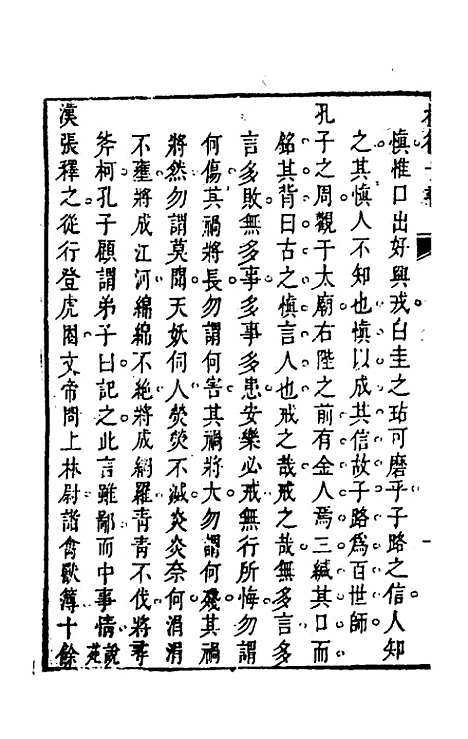 慎惟口出好興戎白圭之玷可磨乎子路之信人知
之其慎人不知也慎以成其信故子路爲百世師
孔子之周觀于太廟右陛之前有金人焉三緘其口而
銘其背曰古之慎言人也戒之哉戒之哉無多言多
言多敗無多事多事多患安樂必戒無行所悔勿謂
何傷其禍將長勿謂何害其禍將大勿謂何殘其禍
將然勿謂莫聞天妖伺人熒熒不滅炎炎奈何涓涓
不壅將成江河綿綿不絶將成網羅靑靑不伐將尋
斧柯孔子顧謂弟子曰記之此言雖鄙而中事情說苑
漢張釋之從行登虎圈文帝問上林尉諸禽獸簿十餘